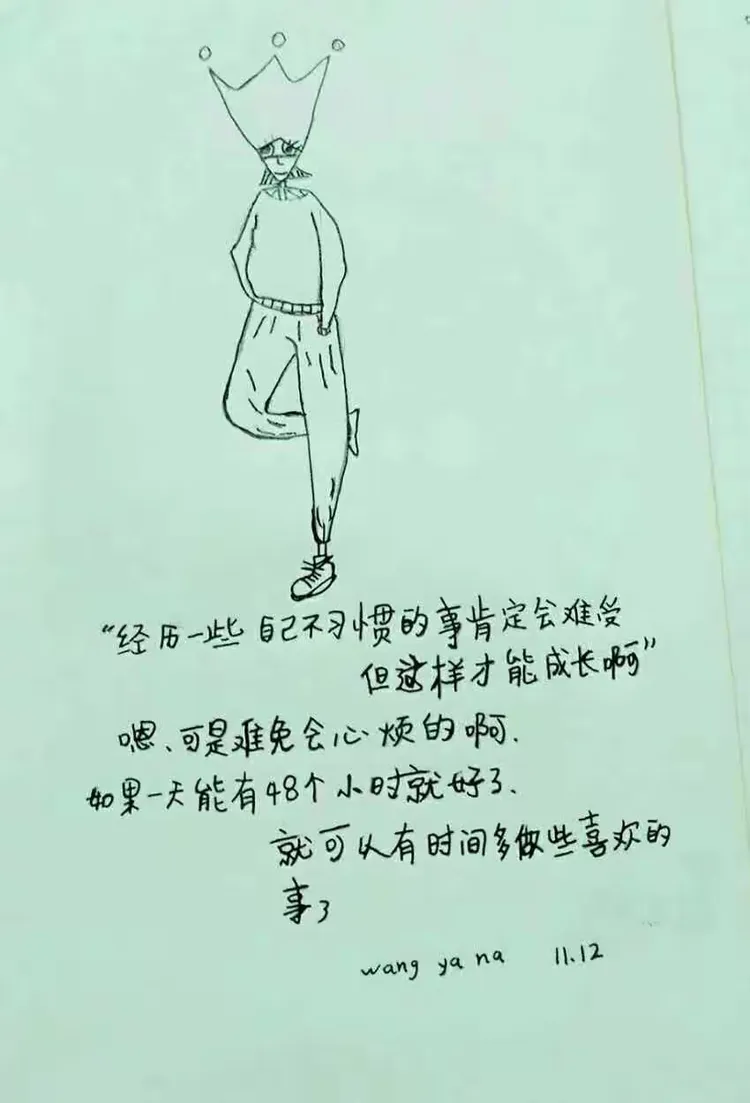 “经历一些自己不习惯的事肯定会难受
但这样才能成长啊”
嗯、可是难免会心烦的啊.
如果一天能有48个小时就好了.
就可以有时间多做些喜欢的
事了
wang ya na 11.12